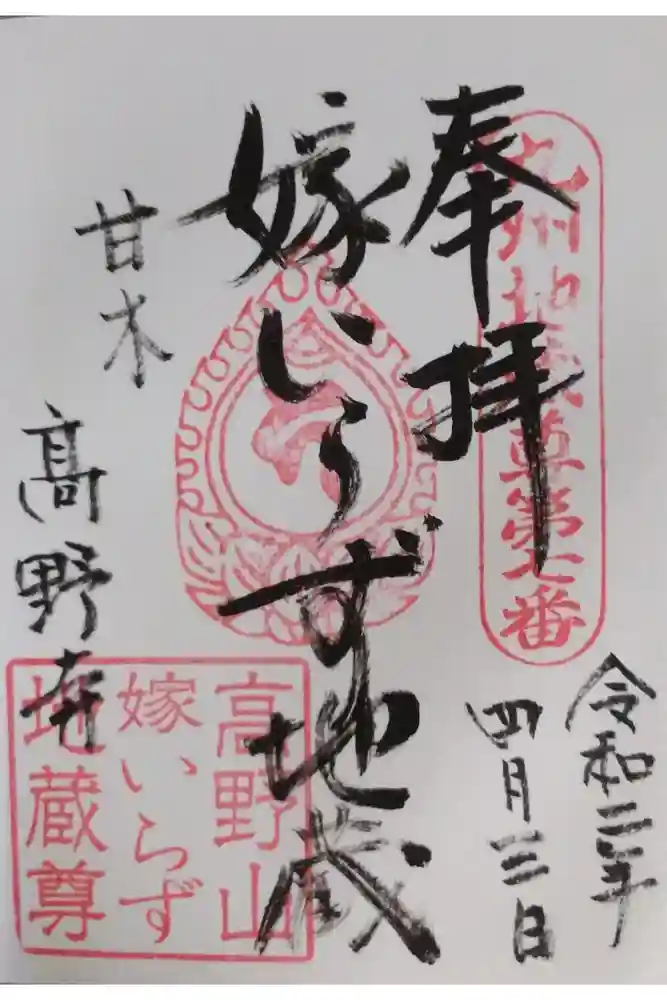 奉拝
九州地蔵尊第七番
令和二年
四月三日
嫁いらず地蔵
甘木
高野寺
高野山
嫁いらず
地蔵尊